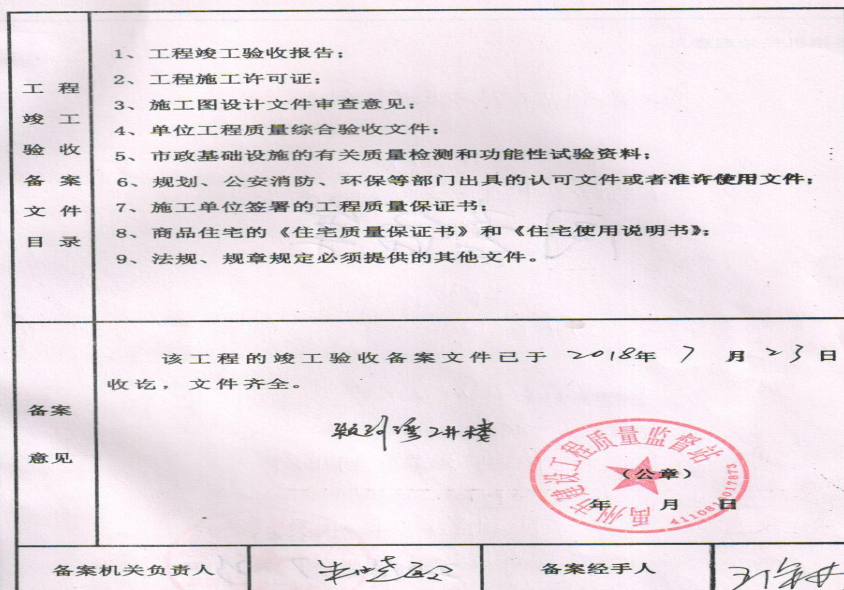 工程
竣工
验收
备案
文件
目录
1、工程竣工验收报告；
2、工程施工许可证；
3、施工图设计文件审查意见；
4、单位工程质量综合验收文件；
5、市政基础设施的有关质量检测和功能性试验资料；
6、规划、公安消防、环保等部门出具的认可文件或者准许使用文件；
7、施工单位签署的工程质量保证书；
8、商品住宅的《住宅质量保证书》和《住宅使用说明书》；
9、法规、规章规定必须提供的其他文件。
备案
意见
该工程的竣工验收备案文件已于 2018年 7 月 23 日
收讫，文件齐全。
禹州市建设工程质量监督站
（公章）
年 月 日
备案机关负责人
备案经手人